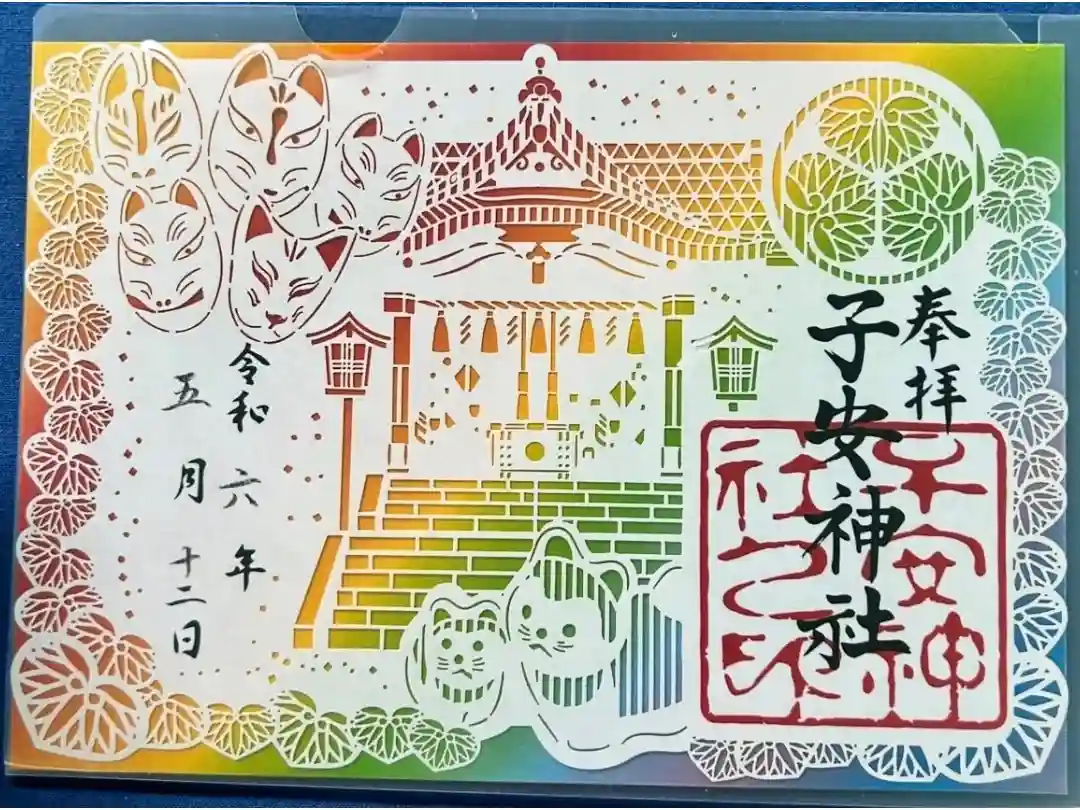 奉拝
子安神社
子安神
社之印
令和六年
五月十二日